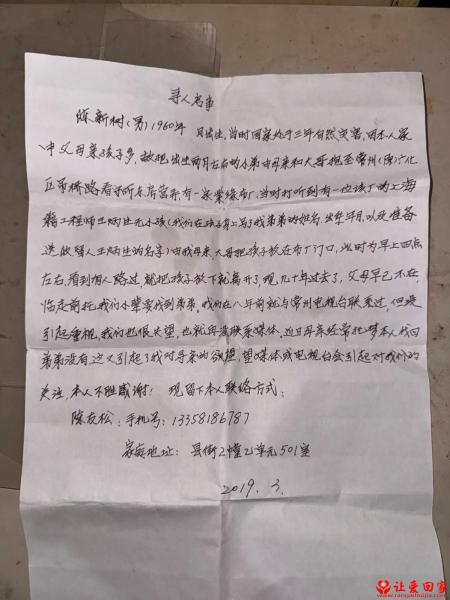 寻人启事
陈新树(男)1960年 月出生,当时国家处于三年自然灾害,因本人家
中父母亲孩子多,故把出生两月左右的小弟由母亲和大哥抱至常州(原)广化
区吊桥路看守所右营有一家棠缘布厂,当时打听到有一位该厂的上海
籍工程师王炳生无小孩(我们在孩子身上写了我弟弟的姓名,出生年月,以及准备
送收留人王炳生的名字)由我母亲大哥把孩子放在布厂门口,此时为早上四点
左右,看到有人路过,就把孩子放下就离开了,现几十年过去了,父母早已不在,
临走前托我们小辈要找到弟弟,我们在八年前就与常州电视台联系过,但未
引起重视,我们也很失望,也就再没联系媒体,近日母亲经常托梦本人找回
弟弟没有,这又引起了我对寻亲的欲望,望媒体或电视台会引起对我们的
关注,本人不胜感谢! 现留下本人联络方式:
陈友松:手机号:13358186787
家庭地址:县街2幢乙单元501室
2019.3.
让爱回家
www.ranqaihuijia.com